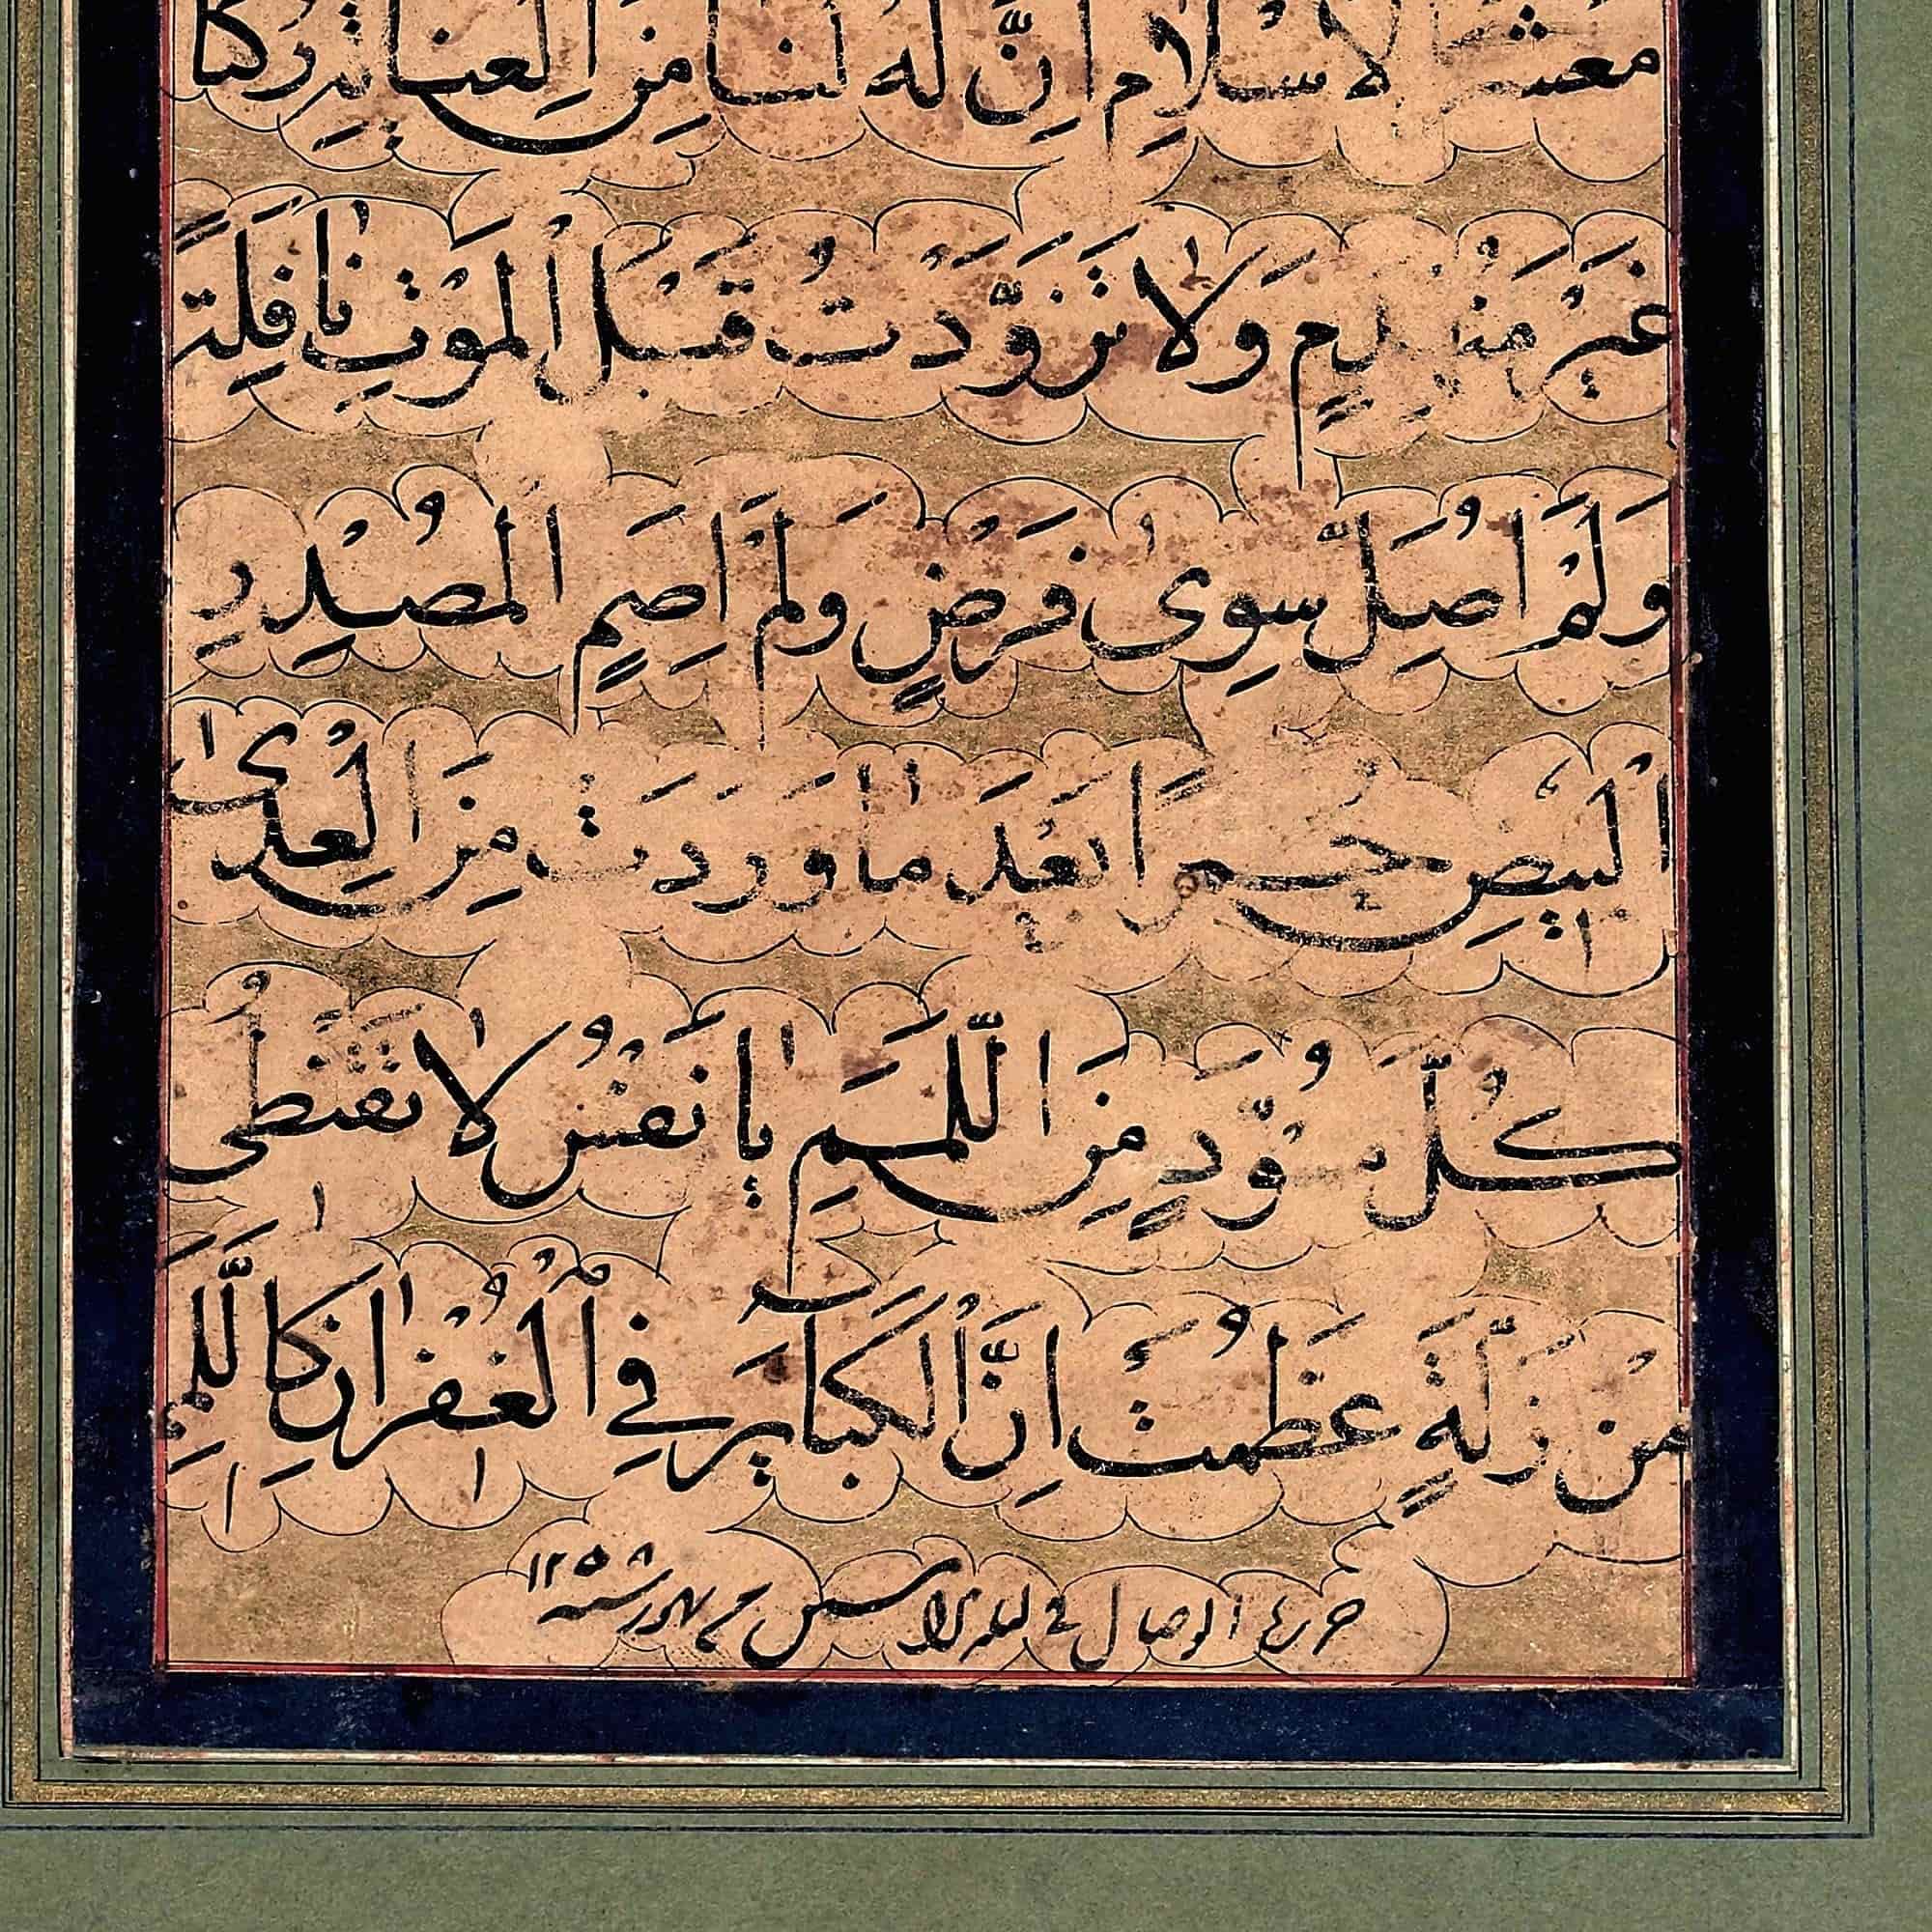 مَعْشَرَ الْاِسْلَامِ اِنَّ لَهٗ لَنَا مِنَ الْعِنَايَةِ رُكْنًا
غَيْرَ مُنْهَدِمٍ وَلَا تَزَوَّدْتُ قَبْلَ الْمَوْتِ نَافِلَةً
وَلَمْ اُصَلِّ سِوٰى فَرْضٍ وَلَمْ اَصُمِ الْمُصْدِرِ
الْبِيضِ حُمْرًا بَعْدَ مَا وَرَدَتْ مِنَ الْعِدٰى
كُلَّ مُسْوَدٍّ مِنَ اللِّمَمِ يَا نَفْسُ لَا تَقْنَطِى
مِنْ زَلَّةٍ عَظُمَتْ اِنَّ الْكَبَآئِرَ فِى الْغُفْرَانِ كَاللَّمَمِ
حرره الوصال فى ليله الا من شهور سنه ١٢٥٨